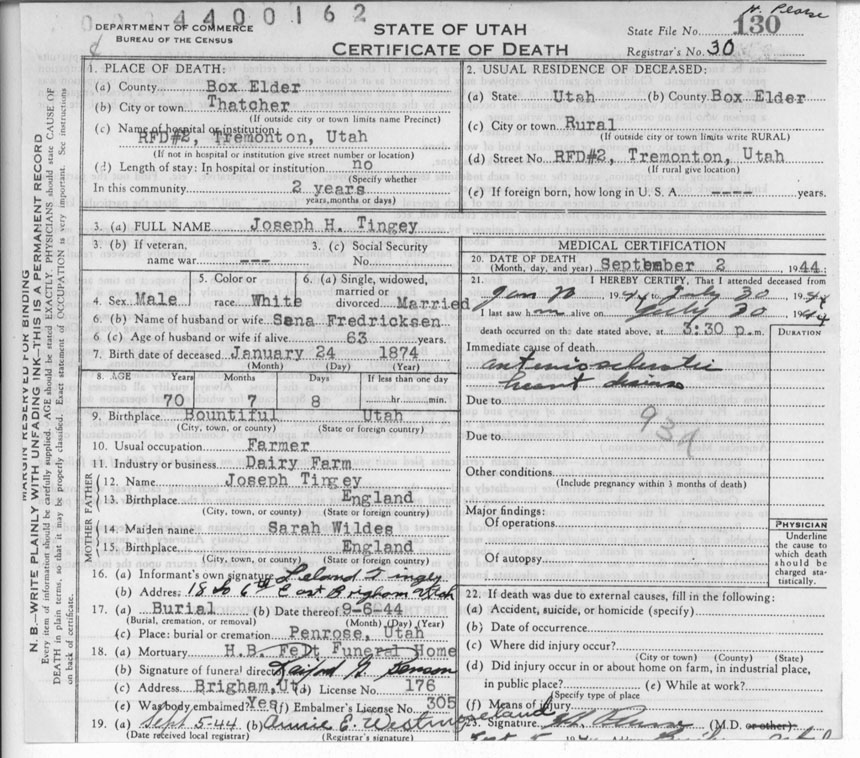 0014400162
H. Pearse
DEPARTMENT OF COMMERCE
BUREAU OF THE CENSUS
STATE OF UTAH
CERTIFICATE OF DEATH
State File No. 130
Registrar's No. 30
MARGIN RESERVED FOR BINDING
N. B.—WRITE PLAINLY WITH UNFADING INK—THIS IS A PERMANENT RECORD
Every item of information should be carefully supplied. AGE should be stated EXACTLY. PHYSICIANS should state CAUSE OF
DEATH in plain terms, so that it may be properly classified. Exact statement of OCCUPATION is very important. See instructions
on back of certificate.
1. PLACE OF DEATH:
(a) County Box Elder
(b) City or town Thatcher
(If outside city or town limits name Precinct)
(c) Name of hospital or institution:
RFD#2, Tremonton, Utah
(If not in hospital or institution give street number or location)
(d) Length of stay: In hospital or institution no
(Specify whether
In this community 2 years
years, months or days)
2. USUAL RESIDENCE OF DECEASED:
(a) State Utah (b) County Box Elder
(c) City or town Rural
(If outside city or town limits write RURAL)
(d) Street No. RFD#2, Tremonton, Utah
(If rural give location)
(e) If foreign born, how long in U. S. A. ---- years.
3. (a) FULL NAME Joseph H. Tingey
3. (b) If veteran,
name war ---
3. (c) Social Security
No.
4. Sex Male
5. Color or
race White
6. (a) Single, widowed,
married or
divorced Married
6. (b) Name of husband or wife Sena Fredricksen
6. (c) Age of husband or wife if alive 63 years.
7. Birth date of deceased January 24 1874
(Month) (Day) (Year)
8. AGE Years Months Days If less than one day
70 7 8 hr. min.
9. Birthplace Bountiful Utah
(City, town, or county) (State or foreign country)
10. Usual occupation Farmer
11. Industry or business Dairy Farm
FATHER
12. Name Joseph Tingey
13. Birthplace England
(City, town, or county) (State or foreign country)
MOTHER
14. Maiden name Sarah Wildes
15. Birthplace England
(City, town, or county) (State or foreign country)
16. (a) Informant's own signature Leland Tingey
(b) Address 18 So 6th East Brigham Utah
17. (a) Burial (b) Date thereof 9-6-44
(Burial, cremation, or removal) (Month) (Day) (Year)
(c) Place: burial or cremation Penrose, Utah
18. (a) Mortuary H.B. Felt Funeral Home
(b) Signature of funeral director
(c) Address Brigham, Ut. (d) License No. 176
(e) Was body embalmed? Yes (f) Embalmer's License No. 305
19. (a) Sept 5-44 (b) Annie E. Westmoreland
(Date received local registrar) (Registrar's signature)
MEDICAL CERTIFICATION
20. DATE OF DEATH
(Month, day, and year) September 2, 1944:
21. I HEREBY CERTIFY, That I attended deceased from
Jan, 1944 to July 30, 1944
I last saw him alive on July 30 1944
death occurred on the date stated above, at 3:30 p.m.
DURATION
Immediate cause of death
arteriosclerotic
heart disease
Due to
93d
Due to
Other conditions
(Include pregnancy within 3 months of death)
Major findings:
Of operations
Of autopsy
PHYSICIAN
Underline
the cause to
which death
should be
charged sta-
tistically.
22. If death was due to external causes, fill in the following:
(a) Accident, suicide, or homicide (specify)
(b) Date of occurrence
(c) Where did injury occur?
(City or town) (County) (State)
(d) Did injury occur in or about home on farm, in industrial place,
in public place? (e) While at work?
(Specify type of place
(f) Means of injury
23. Signature (M.D. or other)